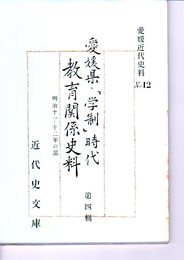 愛媛近代史料
No.12
愛媛県「学制」時代
教育関係史料
第四輯
明治十一・十二年の部
近代史文庫